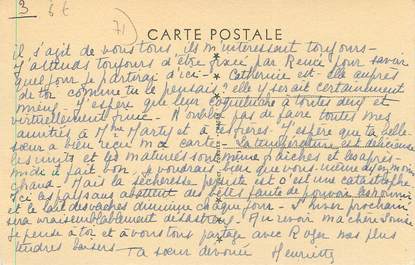 3
6€
71
CARTE POSTALE
il s'agit de vous tous ils m'intéressent toujours -
J'attends toujours d'être fixée par René pour savoir
quel jour je partirai d'ici - Catherine est-elle auprès
de toi comme tu le pensais? elle y serait certainement
mieux - J'espère que leur à toutes deux est
finie - N'oublie pas de faire toutes mes
amitiés à Mme Marty et à J'espère que ta belle
sœur a bien reçu ma carte - La température est délicieuse
les nuits et les matinées sont même fraîches et les après-
midi il fait bon, je voudrais bien que vous ayiez moins
chaud - Mais la sécheresse persiste et c'est une catastrophe
Ici les paysans abattent des bêtes faute de pouvoir les nourrir
et le lait des vaches diminue chaque jour - L'hiver prochain
sera vraisemblablement désastreux. Au revoir ma chère
Je pense à toi et à vous tous partage avec Roger nos plus
tendres baisers - Ta sœur dévouée Henriette